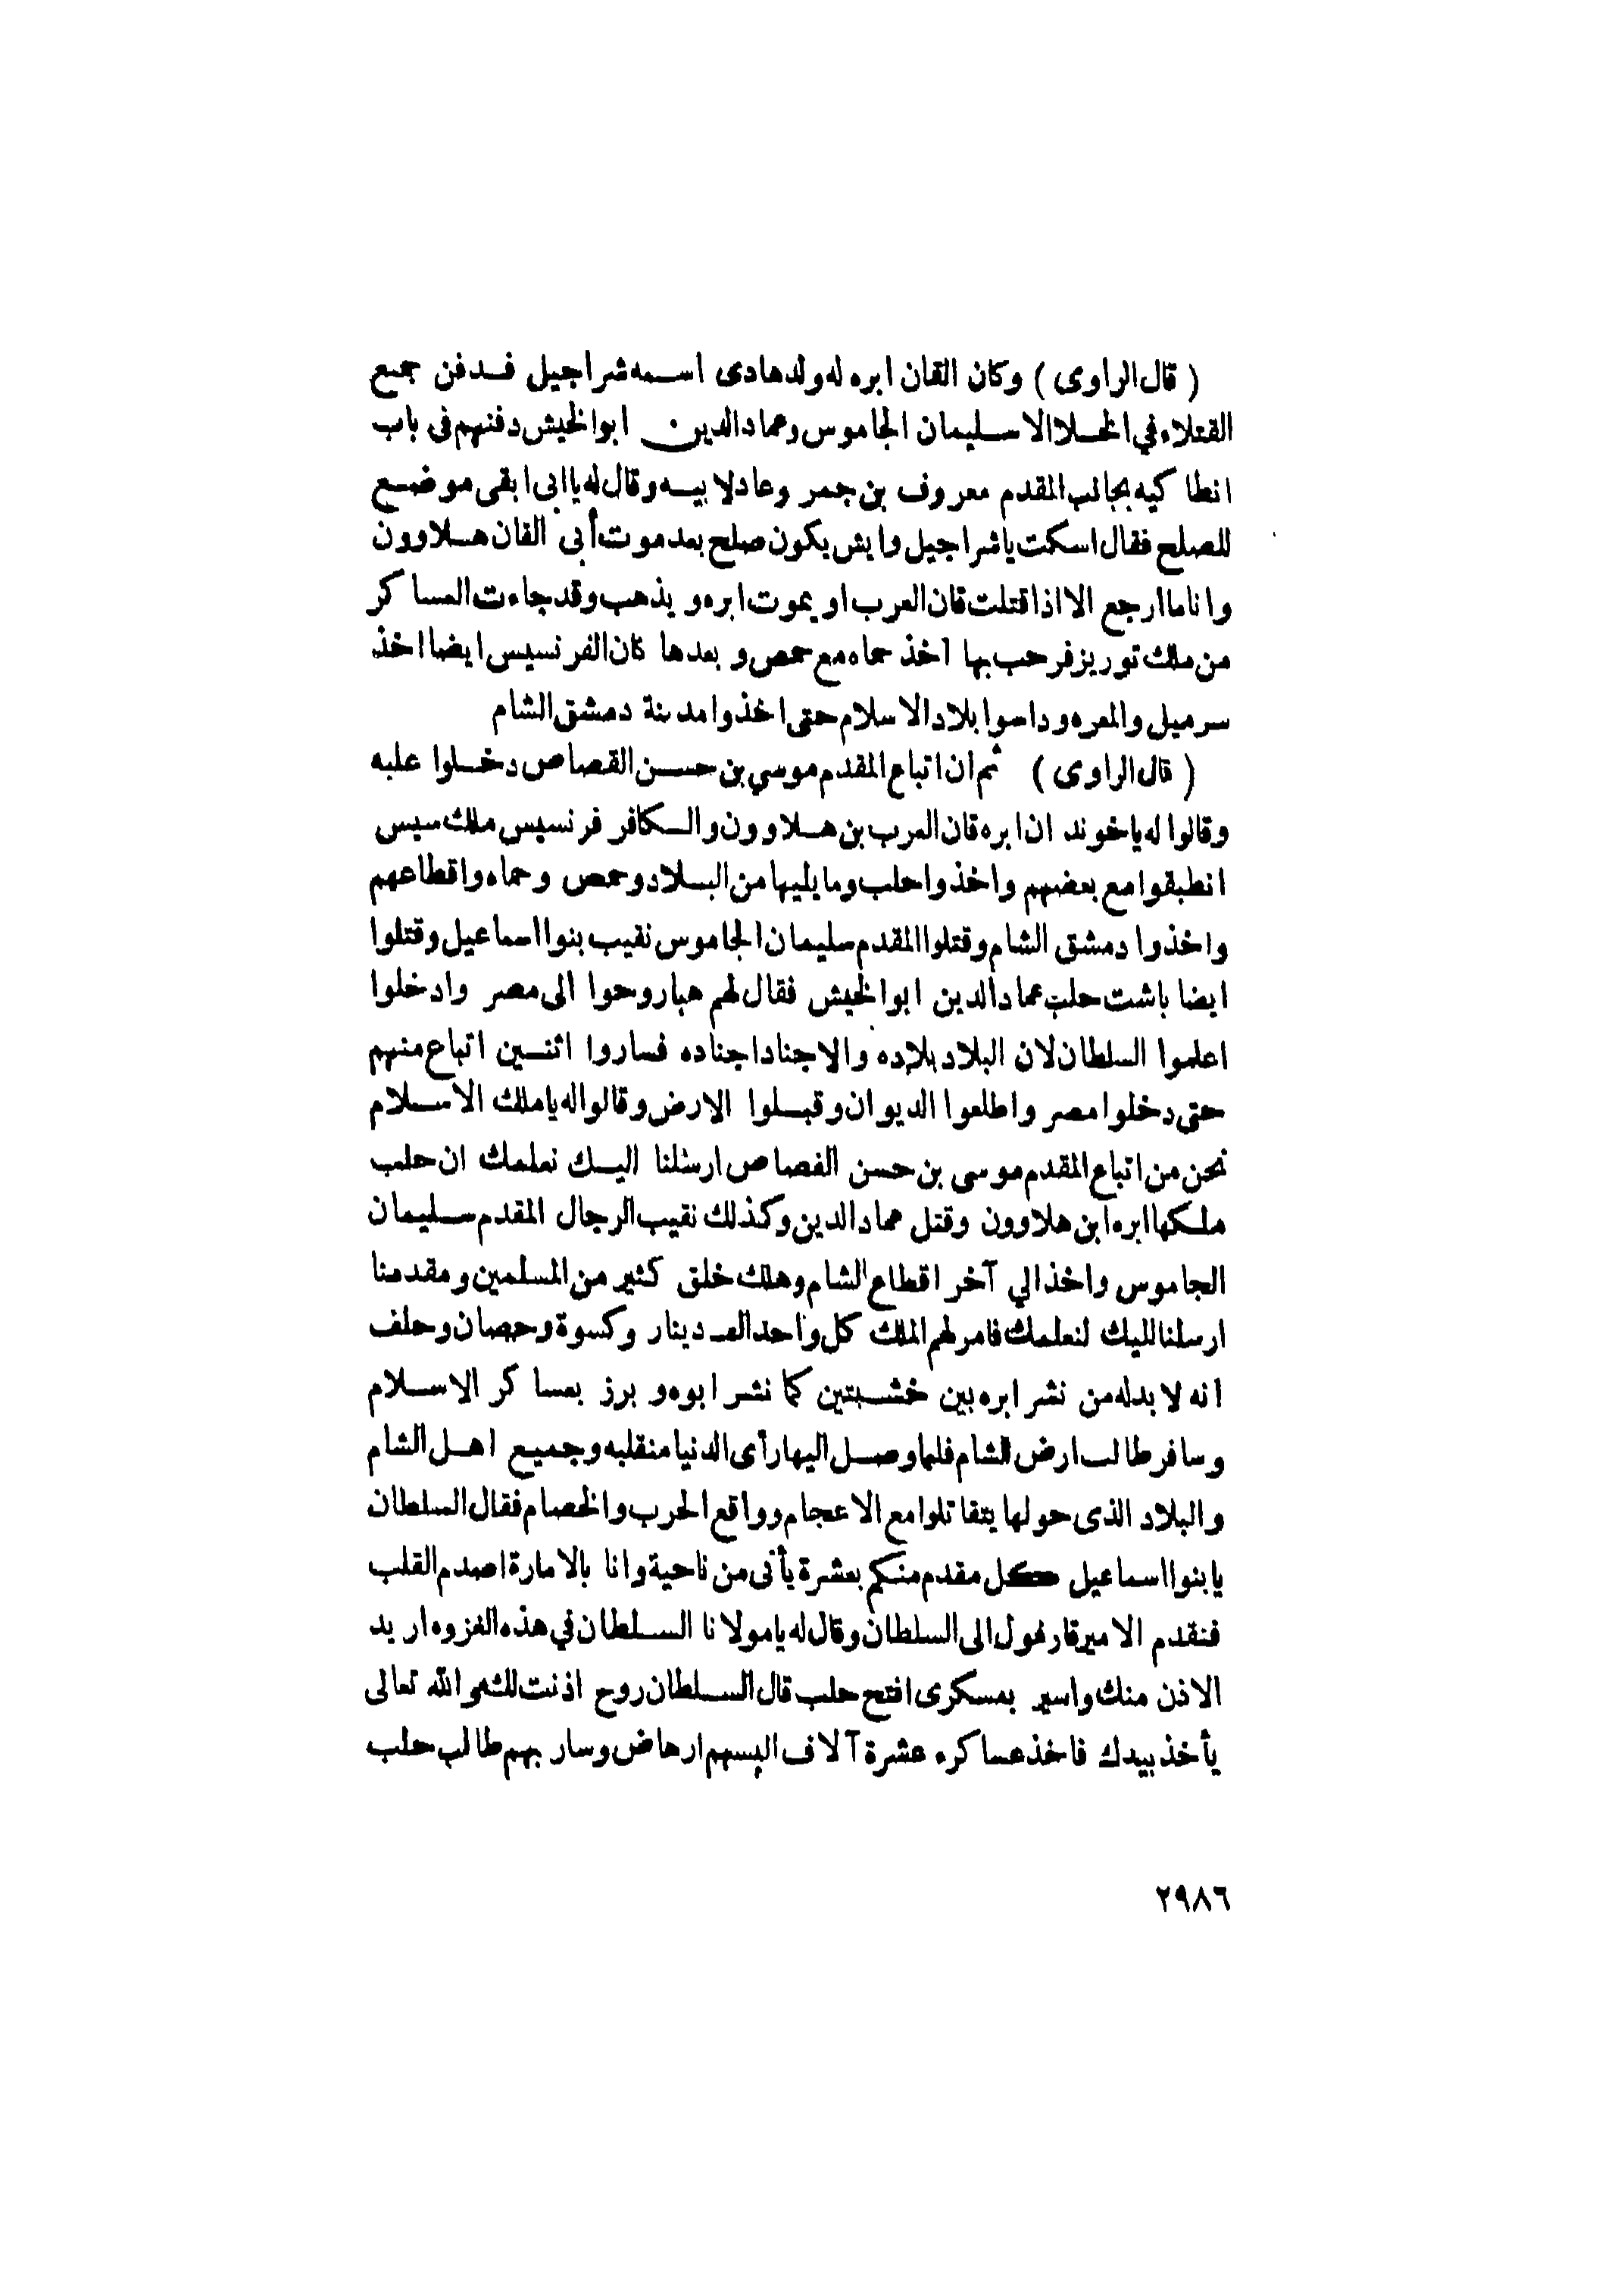 ( قال الراوى ) وكان القان ابره له ولد هادى اسمه شراجيل فدفن جميع
القتلاء في الخلا الا سليمان الجاموس وعماد الدين ابوا لخيش دفنهم فى باب
انطا كيه بجانب المقدم معروف بن جمر وعاد لابيه وقال له يا ابى ابقى موضع
للصلح فقال اسكت يا شراجيل وايش يكون صلح بعد موت أبى القان هلاوون
وانا ما ارجع الا اذا قتلت قان العرب او يموت ابره و يذهب وقد جاءت العسا كر
من ملك توريز فرحب بها اخذ حماه مع حمص و بعدها كان الفرنسيس ايضا اخذ
سرميل والمعره وداسوا بلاد الاسلام حتى اخذوا مدينة دمشق الشام
( قال الراوى ) ثم ان اتباع المقدم موسي بن حسن القصاص دخلوا عليه
وقالوا له ياخوند ان ابره قان العرب بن هلاوون والكافر فرنسيس ملك سيس
انطبقوا مع بعضهم واخذوا حلب وما يليها من البلاد وحمص وحماه واقطاعهم
واخذوا دمشق الشام وقتلوا المقدم سليمان الجاموس نقيب بنوا اسماعيل وقتلوا
ايضا باشت حلب عماد الدين ابوا لخيش فقال لهم هيا روحوا الى مصر وادخلوا
اعلموا السلطان لان البلاد بلاده والاجناد اجناده فساروا اثنين اتباع منهم
حتى دخلوا مصر واطلعوا الديوان وقبلوا الارض وقالوا له ياملك الاسلام
نحن من اتباع المقدم موسى بن حسن القصاص ارسلنا اليك نعلمك ان حلب
ملكها ابره ابن هلاوون وقتل عماد الدين وكذلك نقيب الرجال المقدم سليمان
الجاموس واخذ الي آخر اقطاع الشام وهلك خلق كثير من المسلمين ومقدمنا
ارسلنا لليك لنعلمك فامر لهم الملك كل واحد الف دينار وكسوة وحصان وحلف
انه لا بد له من نشر ابره بين خشبتين كما نشر ابوه و برز بعسا كر الاسلام
وسافر طالب ارض الشام فلما وصل اليها رأى الدنيا منقلبه وجميع اهل الشام
والبلاد الذى حولها يتقاتلوا مع الاعجام وواقع الحرب والخصام فقال السلطان
يا بنوا اسماعيل كل مقدم منكم بعشرة يأتى من ناحية وانا بالامارة اصدم القلب
فتقدم الامير قارنمول الى السلطان وقال له يامولانا السلطان في هذه الغزوه اريد
الاذن منك واسير بعسكرى افتح حلب قال السلطان روح اذنت لك والله تعالى
يأخذ بيدك فاخذ عسا كره عشرة آلاف البسهم ارهاض وسار بهم طالب حلب
٢٩٨٦